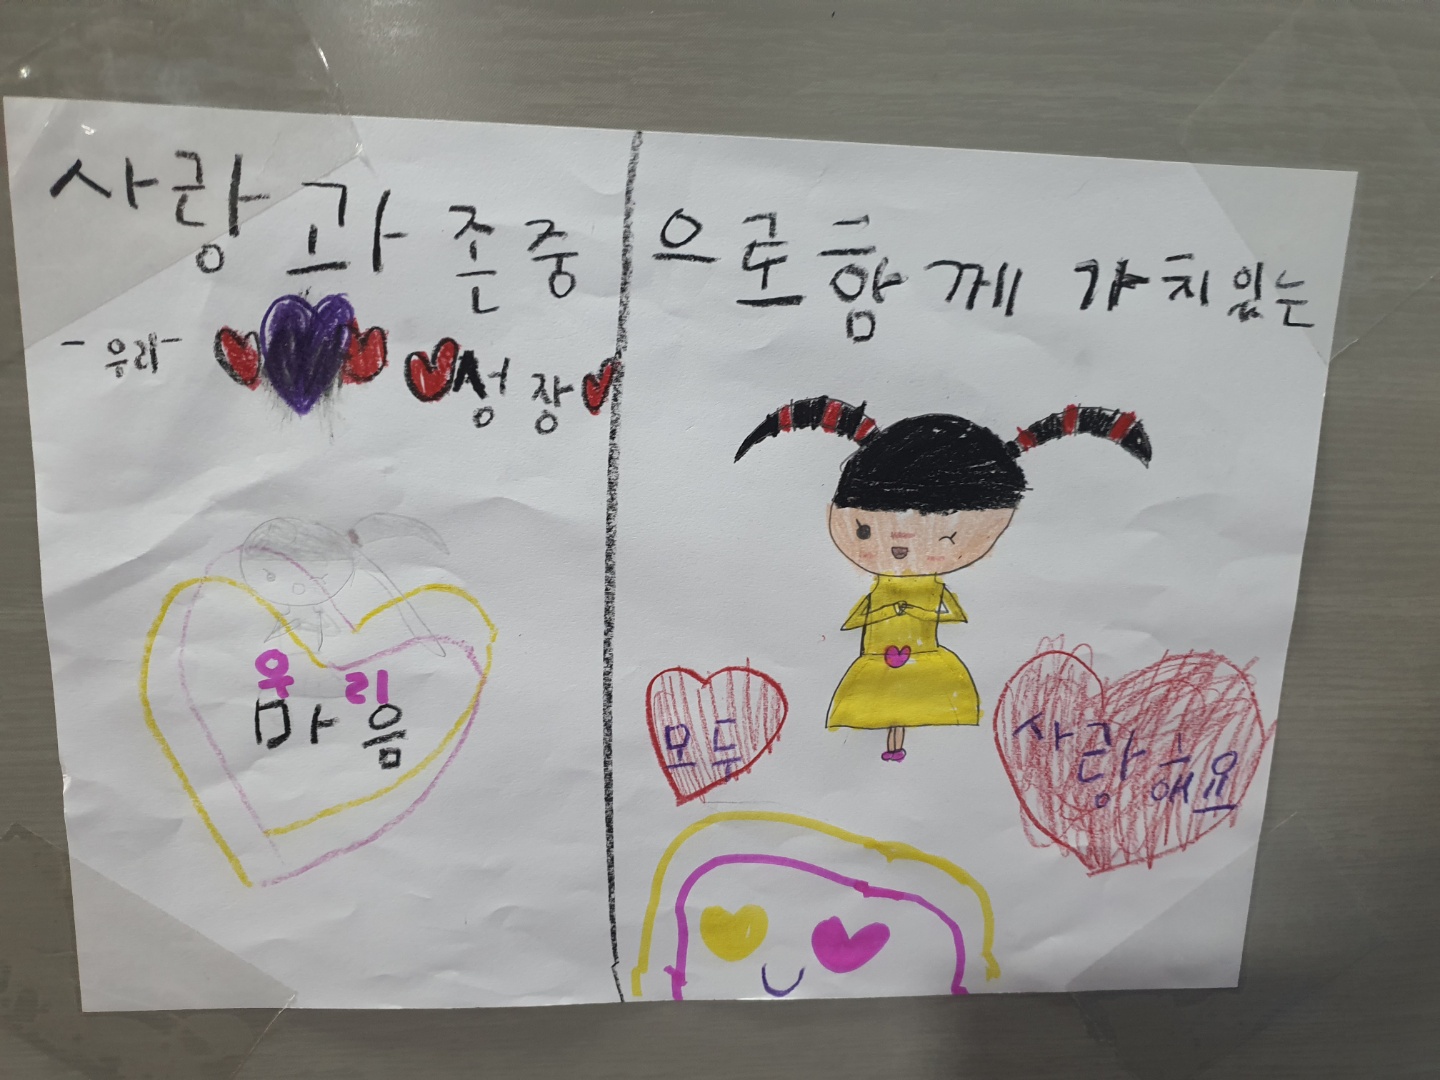 사랑과 존중으로 함께 가치있는
-우리-
성장
우리
마음
모두
사랑해요